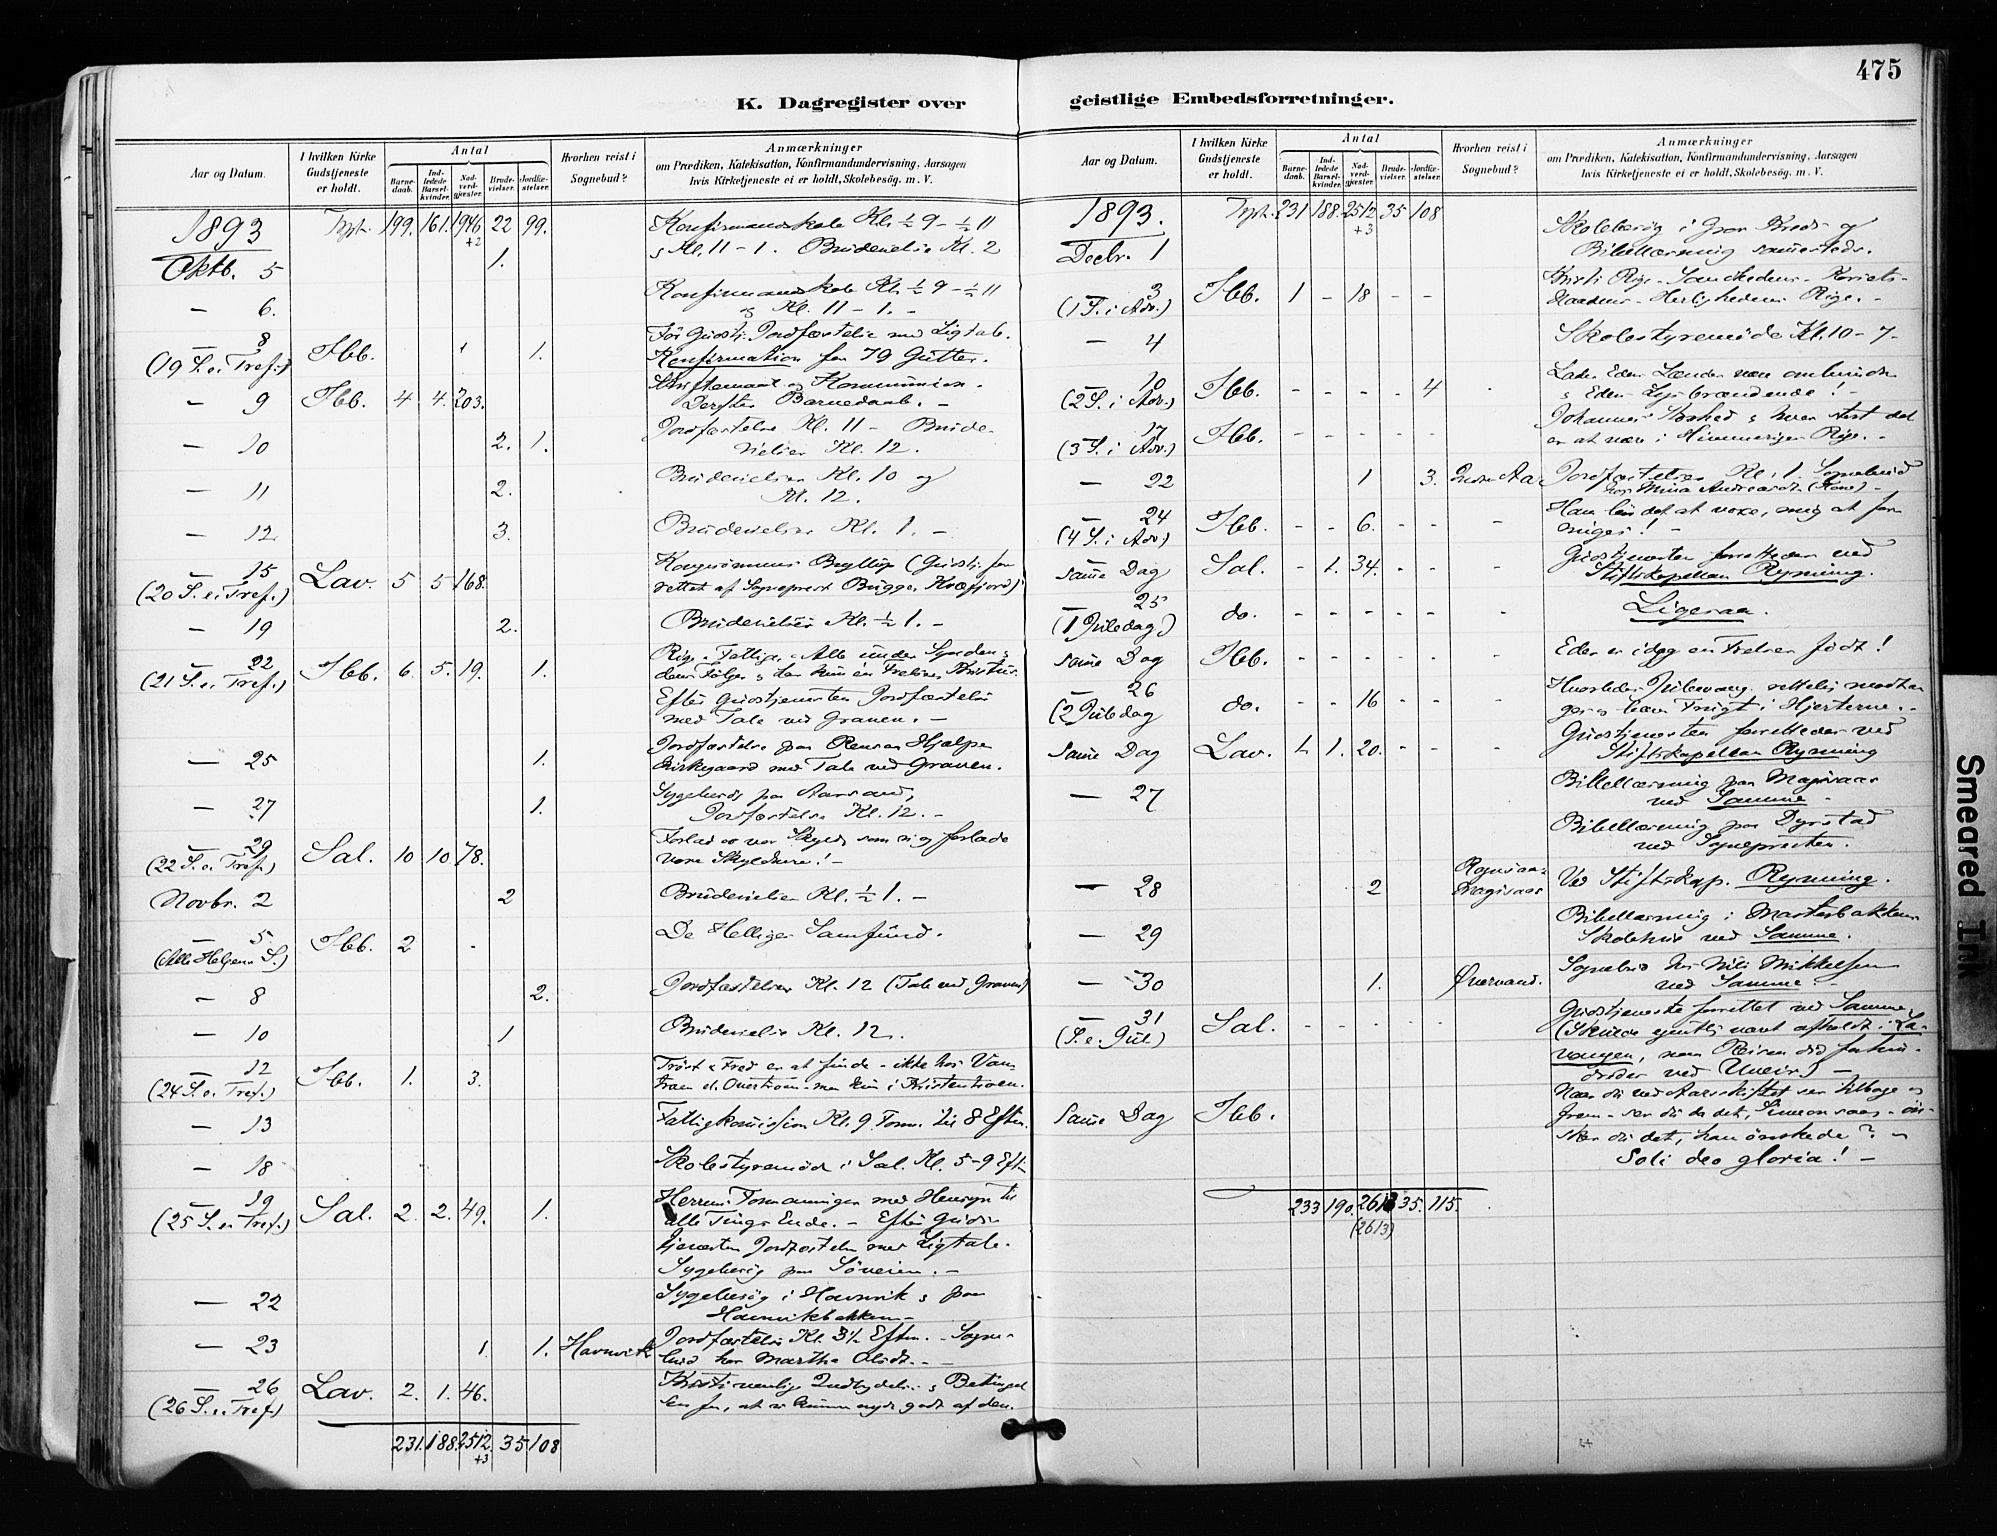 475
K. Dagregister over geistlige Embedsforretninger.
Aar og Datum. I hvilken Kirke Gudstjeneste er holdt. Antal Barnedaab. Indledede Barselkvinder. Nadverdgjester. Brudevielser. Jordfæstelser. Hvorhen reist i Sognebud? Anmærkninger om Prædiken, Katekisation, Konfirmandundervisning, Aarsagen hvis Kirketjeneste ei er holdt, Skolebesøg. m. V.
1893 Tpt. 199. 161. 1946 +2 22 99. Konfirmandskole Kl. ½ 9 - ½ 11
Oktb. 5 1. & Kl. 11 - 1. Brudevielse Kl. 2
— 6. Konfirmandskole Kl. ½ 9 - ½ 11
og Kl. 11 - 1. -
— 8 (19 S. e. Tref.) Ibb. 1 1. Før Gudstj. Jordfæstelse med Ligtale.
Konfirmation for 79 Gutter.
- 9 Ibb. 4 4. 203. Skriftemaal og Kommunion.
Derefter Barnedaab. -
- 10 2. 1. Jordfæstelse Kl. 11 - Brude-
vielser Kl. 12.
- 11 2. Brudevielser Kl. 10 og
Kl. 12.
- 12 3. Brudevielser Kl. 1. -
— 15 (20 S. e. Tref.) Lav. 5 5 168. Kongesønnens Bryllup (Gudstj. for-
rettet af Sogneprest Brügge, Kvæfjord)
- 19 2. Brudevielser Kl. ½ 1. -
— 22 (21 S. e. Tref.) Ibb. 6. 5. 19. 1. Rig - Fattig - Alle under Synden &
dens Følger & har kun én Frelser, Kristus.
Efter Gudstjenesten Jordfæstelse
med Tale ved Graven. -
— 25 1. Jordfæstelse paa
Kirkegaard med Tale ved Graven.
- 27 1. Sygebesøg paa Aarsand,
Jordfæstelse Kl. 12. -
— 29 (22 S. e. Tref.) Sal. 10 10. 78. Forlad os vor Skyld, som vi og forlade
vore Skyldnere! -
Novbr. 2 2 Brudevielser Kl. ½ 1. -
— 5 (Alle Helgens S.) Ibb. 2 - De Helliges Samfund.
- 8 2. Jordfæstelser Kl. 12 (Tale ved Graven)
- 10 1 Brudevielse Kl. 12.
— 12 (24 S. e. Tref.) Ibb. 1. 3. Trøst & Fred er at finde - ikke hos Van-
troen el. Overtroen - men kun i Kristentroen.
- 13 Fattigkomission Kl. 9 Form. til 8 Eftm.
- 18 Skolestyremøde i Sal. Kl. 5-9 Eft-
— 19 (25 S. e. Tref.) Sal. 2. 2. 49. 1. Herrens Formaninger med Hensyn til
alle Tings Ende. - Efter Guds-
tjenesten Jordfæstelse med Ligtale.
Sygebesøg paa Søveien. -
— 22 Sygebesøg i Havnvik & paa
Havnvikbakken -
- 23 1. 1. Havnvik Jordfæstelse Kl. 3½ Eftm. - Sogne-
bud hos Martha
— 26 (26 S. e. Tref.) Lav. 2. 1. 46. Kristi venlige Indbydelse & Betingel-
sen for, at vi kunne nyde godt af den.
231. 188. 2512. +3 35 108
Aar og Datum. I hvilken Kirke Gudstjeneste er holdt. Antal Barnedaab. Indledede Barselkvinder. Nadverdgjester. Brudevielser. Jordfæstelser. Hvorhen reist i Sognebud? Anmærkninger om Prædiken, Katekisation, Konfirmandundervisning, Aarsagen hvis Kirketjeneste ei er holdt, Skolebesøg. m. V.
1893. Tpt. 231 188. 2512 +3 35 108 Skolebesøg i Kreds og
Decbr. 1 Bibellæsning sammesteds.
— 3 (1 S. i Adv.) Ibb. 1 - 18 - - Kristi Rige - Sandhedens -
Naadens - Herlighedens Rige. -
— 4 Skolestyremøde Kl. 10 - 7 -
— 10 (2 S. i Adv.) Ibb. - - - - 4 - Lader Eders Lænder være ombundne
& Eders Lys brændende! -
— 17 (3 S. i Adv.) Ibb. - - - - - Johannes Storhed & hvor stort det
er at være i Himmeriges Rige. -
— 22 1 3. Jordfæstelser Kl. 1. Sognebud
hos Mina (Kone) -
— 24 (4 S. i Adv.) Ibb. - - 6. - - - Ham bør det at voxe, mig at for-
ringes! -
Same Dag Sal. - 1. 34. - - - Gudstjenesten forrettedes ved
Stiftskapellan Ryning.
— 25 (1 Juledag) do. - - - - - - Ligesaa.
Same Dag Ibb. - - - - - - Eder er idag en Frelser født!
— 26 (2 Juledag do. - - 16 - - - Hvorledes Julevang. rettelig modta-
ges & bærer Frugt i Hjerterne. -
Same Dag Lav. 1. 1. 20. - - - Gudstjenesten forrettedes ved
Stiftskapellan Ryning
— 27 Bibellæsning paa
ved Samme -
Bibellæsning paa Dyrstad
ved Sognepresten.
— 28 2 Ved Stiftskap. Ryning.
— 29 Bibellæsning i
Skolehus ved Samme.
— 30 1. Sognebud hos Nils Mikkelsen
ved Samme. -
— 31 (S. e. Jul) Sal. - - - - - - Gudstjeneste forrettet ved Samme
(Skulde egentlig været afholdt i La-
vangen, men Reisen did forhin-
dredes ved Uveir.) -
Same Dag Ibb. Naar du ved Aarsskiftet ser tilbage og
frem - ser du da det, Simeon saa - øn-
sker du det, han ønskede? -
Soli deo gloria! -
233 190. 2613 (2613) 35. 115.
Smeared Ink